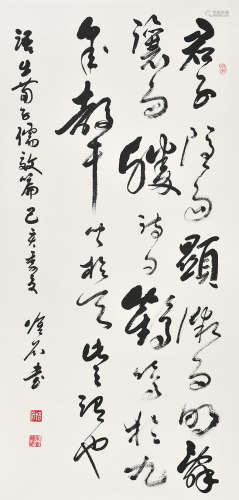 君子隱而顯微而明辭
讓而勝詩曰鶴鳴於九
皋聲聞於天此之謂也
語出荀子儒效篇己亥 石書